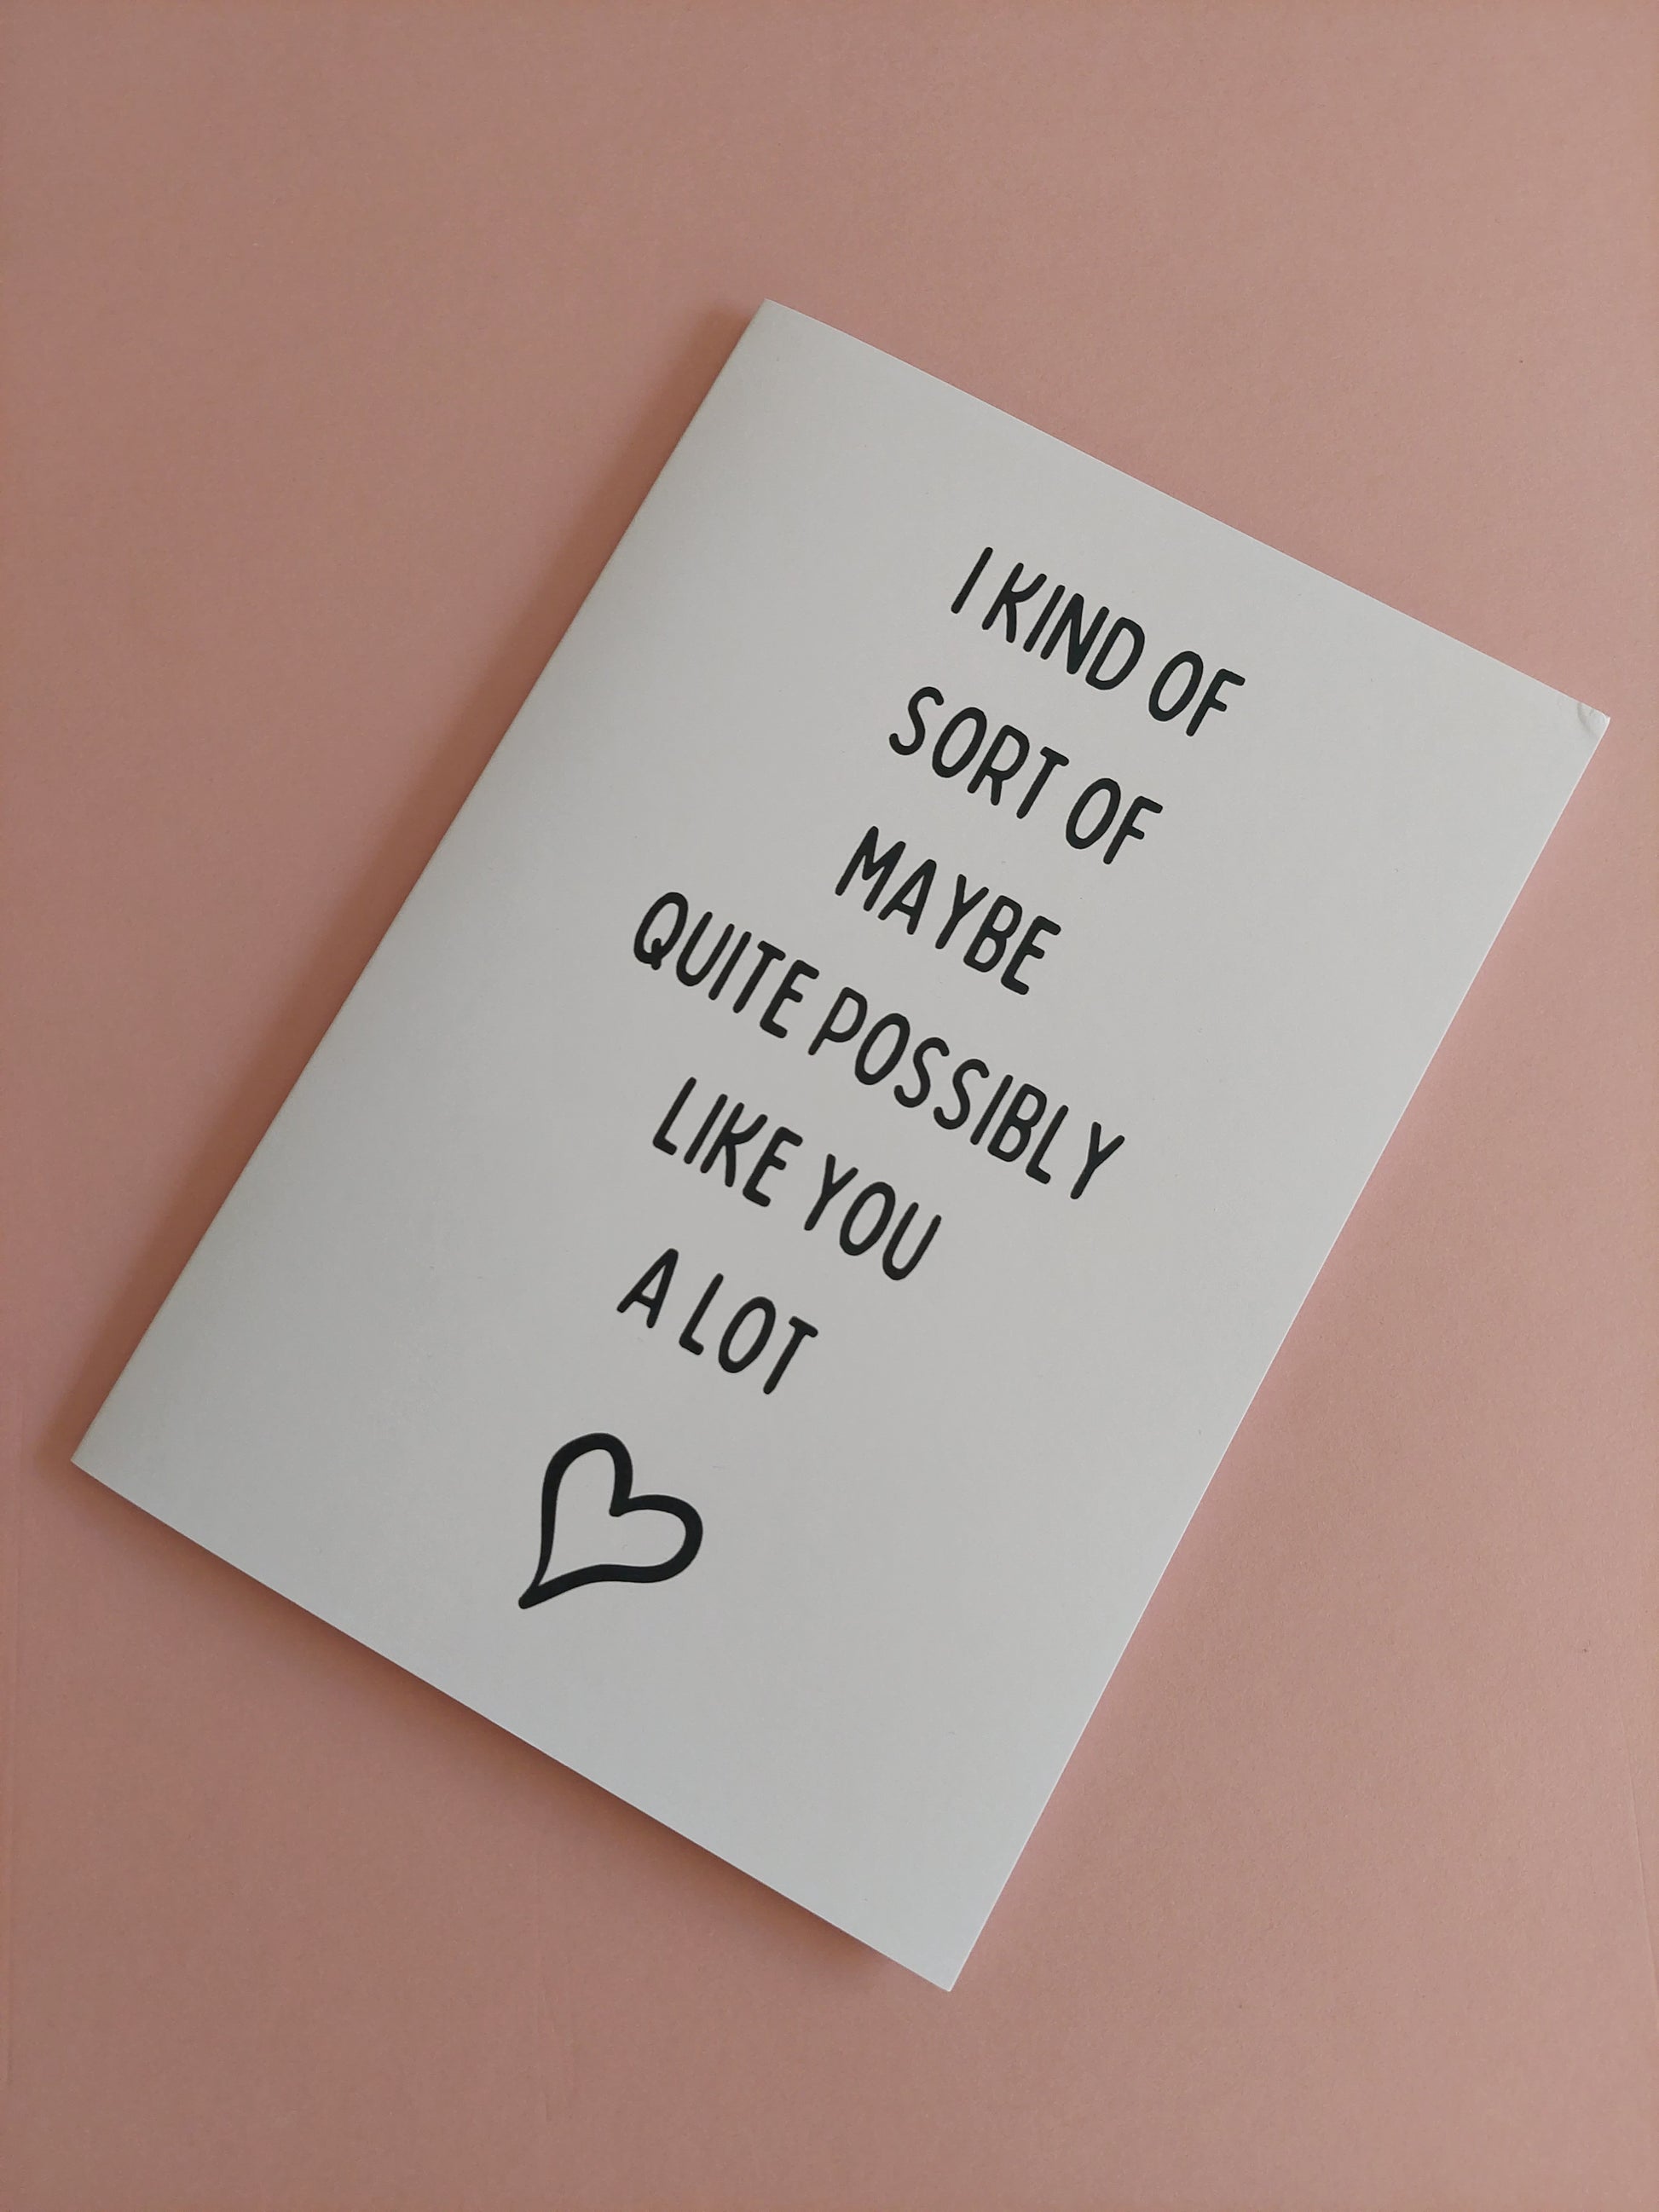 I KIND OF
SORT OF
MAYBE
QUITE POSSIBLY
LIKE YOU
A LOT